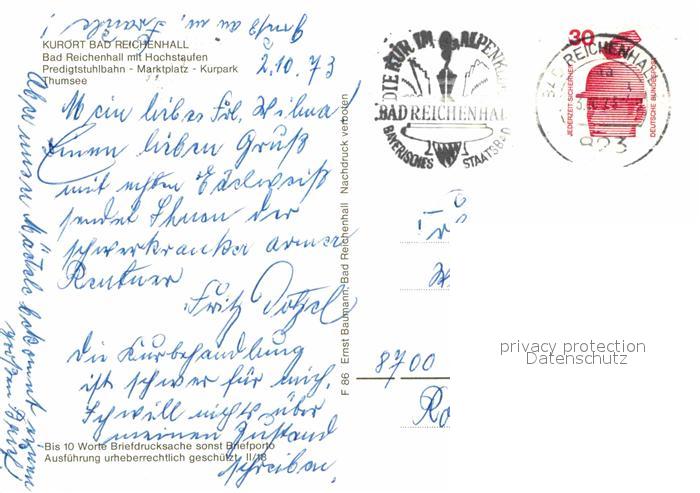 Gruß an
KURORT BAD REICHENHALL
Bad Reichenhall mit Hochstaufen
Predigtstuhlbahn - Marktplatz - Kurpark
Thumsee
2.10.73
Mein liebes Frl. Wilma!
Einen lieben Gruß
mit echtem Edelweiß
sendet Ihnen der
schwerkranke arme
Rentner
Fritz
die Kurbehandlung
ist schwer für mich.
Ich will nichts über
meinen Zustand
schreiben.
Bis 10 Worte Briefdrucksache sonst Briefporto
Ausführung urheberrechtlich geschützt II/18
bekommt einen
F 86 Ernst Baumann, Bad Reichenhall Nachdruck verboten
DIE KUR IM ALPENKLIMA
BAD REICHENHALL
BAYERISCHES STAATSBAD
BAD REICHENHALL
823
30
JEDERZEIT SICHERHEIT
DEUTSCHE BUNDESPOST
8700
Ro
privacy protection
Datenschutz